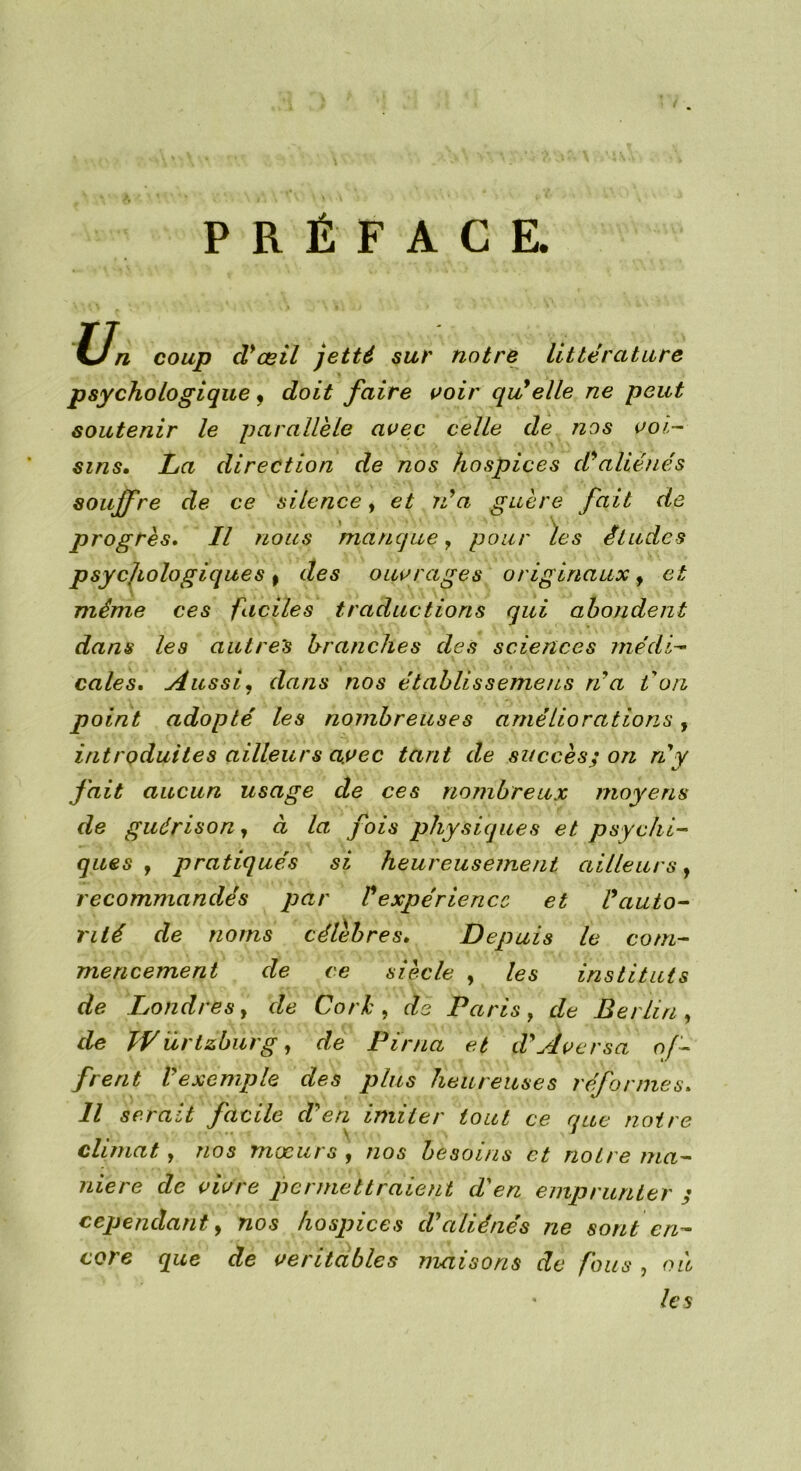 PRÉFACE.
Un coup d'œil jetté sur notre littérature
psychologique, doit faire voir qu'elle ne peut
soutenir le parallèle avec celle de nos voi-
sins. La direction de nos hospices d'aliénés
souffre de ce silence, et n'a guère fait de
progrès. Il nous manque, pour les études
psychologiques, des ouvrages originaux, et
même ces faciles traductions qui abondent
dans les autres branches des sciences médi-
cales. Aussi, dans nos établissemens n'a t'on
point adopté les nombreuses améliorations,
introduites ailleurs avec tant de succès; on n'y
fait aucun usage de ces nombreux moyens
de guérison, à la fois physiques et psychi-
ques, pratiqués si heureusement ailleurs,
recommandés par l'expérience et l'auto-
rité de noms célèbres. Depuis le com-
mencement de ce siècle, les instituts
de Londres, de Cork, de Paris, de Berlin,
de Würtzburg, de Pirna et d'Aversa of-
frent l'exemple des plus heureuses réformes.
Il serait facile d'en imiter tout ce que notre
climat, nos mœurs, nos besoins et notre ma-
niere de vivre permettraient d'en emprunter;
cependant, nos hospices d'aliénés ne sont en-
core que de veritables maisons de fous, où
les